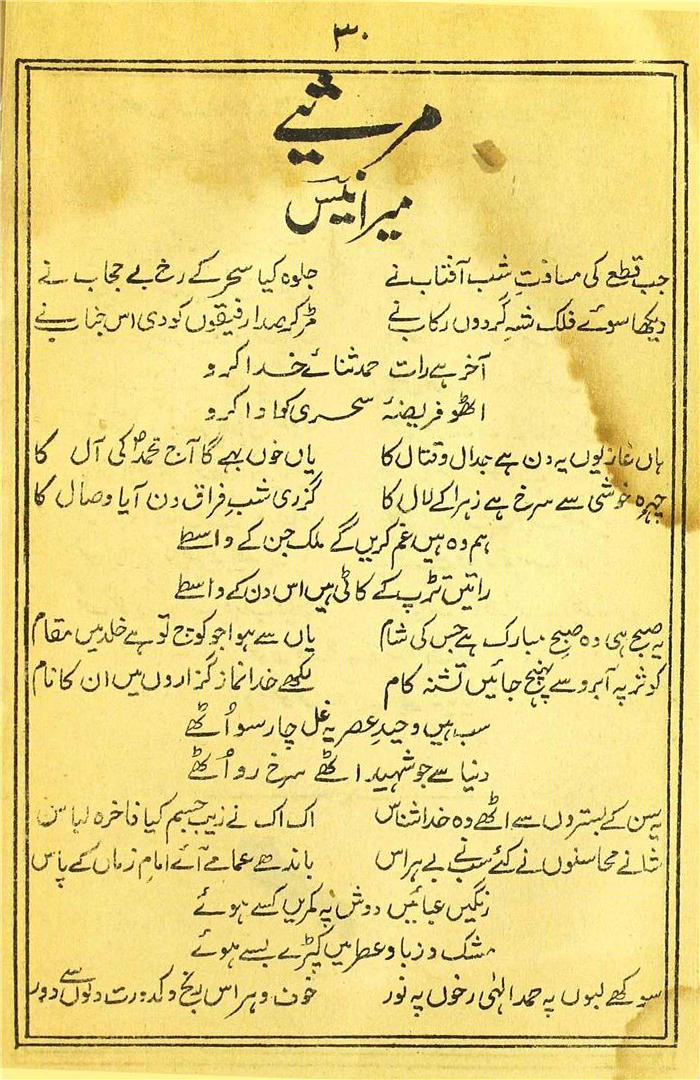 ۳۰
مرثیے
میر انیس
جب قطع کی مسافتِ شب آفتاب نے جلوہ کیا سحر کے رخ بے حجاب نے
دیکھا سوئے فلک شہ گردوں رکاب نے مڑ کر صدا رفیقوں کو دی اس جناب نے
آخر ہے رات حمد ثنائے خدا کرو
اٹھو فریضۂ سحری کو ادا کرو
ہاں غازیوں یہ دن ہے جدال و قتال کا یاں خوں بہے گا آج محمدؐ کی آل کا
چہرہ خوشی سے سرخ ہے زہرا کے لال کا گزری شبِ فراق دن آیا وصال کا
ہم وہ ہیں غم کریں گے ملک جن کے واسطے
راتیں تڑپ کے کاٹی ہیں اس دن کے واسطے
یہ صبح ہی وہ صبحِ مبارک ہے جس کی شام یاں سے ہوا جو کوچ تو ہے خلد میں مقام
کوثر پہ آبرو سے پہنچ جائیں تشنہ کام لکھے خدا نماز گزاروں میں ان کا نام
سب ہیں وحیدِ عصر یہ غل چار سو اُٹھے
دنیا سے جو شہید اٹھے سرخ رو اُٹھے
یہ سن کے بستروں سے اٹھے وہ خدا شناس اک اک نے زیب جسم کیا فاخرہ لباس
شانے محاسنوں نے کئے سب نے بے ہراس باندھے عمامے آئے امامِ زماں کے پاس
رنگیں عبائیں دوش پہ کمریں کسے ہوئے
مشک و زباد و عطر میں کپڑے بسے ہوئے
سوکھے لبوں پہ حمد الٰہی رخوں پہ نور خوف و ہراس رنج و کدورت دلوں سے دور